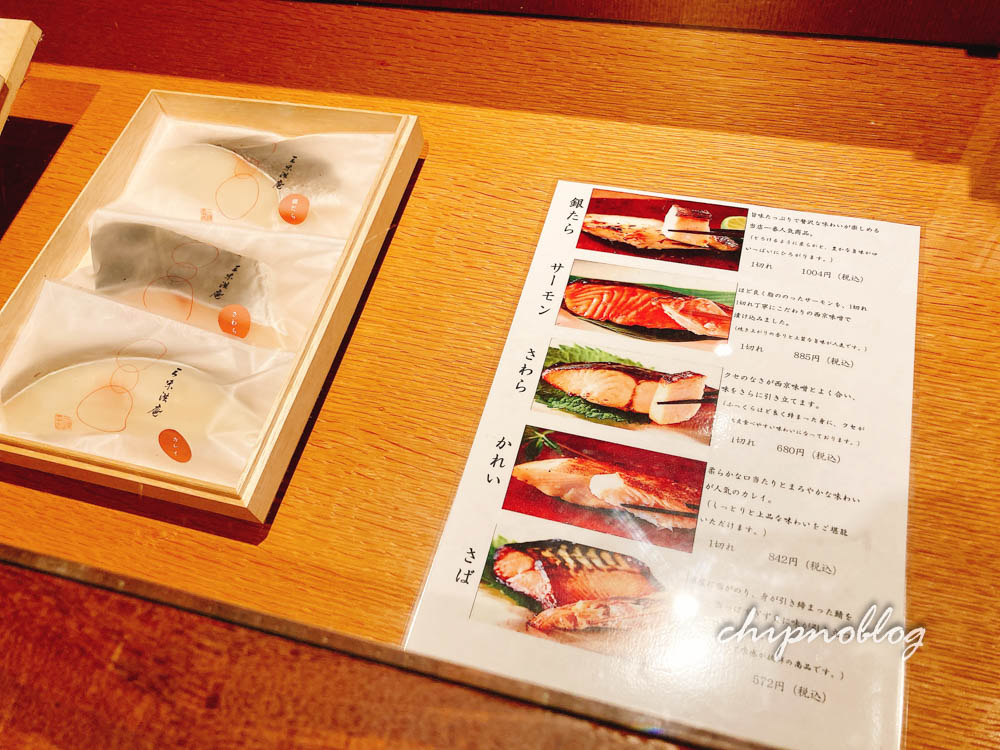 銀たら
旨味たっぷりで贅沢な味わいが楽しめる
当店一番人気商品。
(とろけるように柔らかと、豊かな旨味が口
いっぱいにひろがります。)
1切れ 1004円(税込)
サーモン
ほど良く脂ののったサーモンを、1切れ
1切れ丁寧にこだわりの西京味噌で
漬け込みました。
(焼き上がりの香りと上質な旨味が人気です。)
1切れ 885円(税込)
さわら
クセのなさが西京味噌とよく合い、
味をさらに引き立てます。
(ふっくらほど良く締まった身に、クセが
食べやすい味わいになっております。)
1切れ 680円(税込)
かれい
柔らかな口当たりとまろやかな味わい
が人気のカレイ。
(しっとりと上品な味わいをご堪能
いただけます。)
1切れ 842円(税込)
さば
脂がのり、身が引き締まった鯖を
の商品です。)
572円(税込)
銀たら
さわら
カレイ
chipnoblog